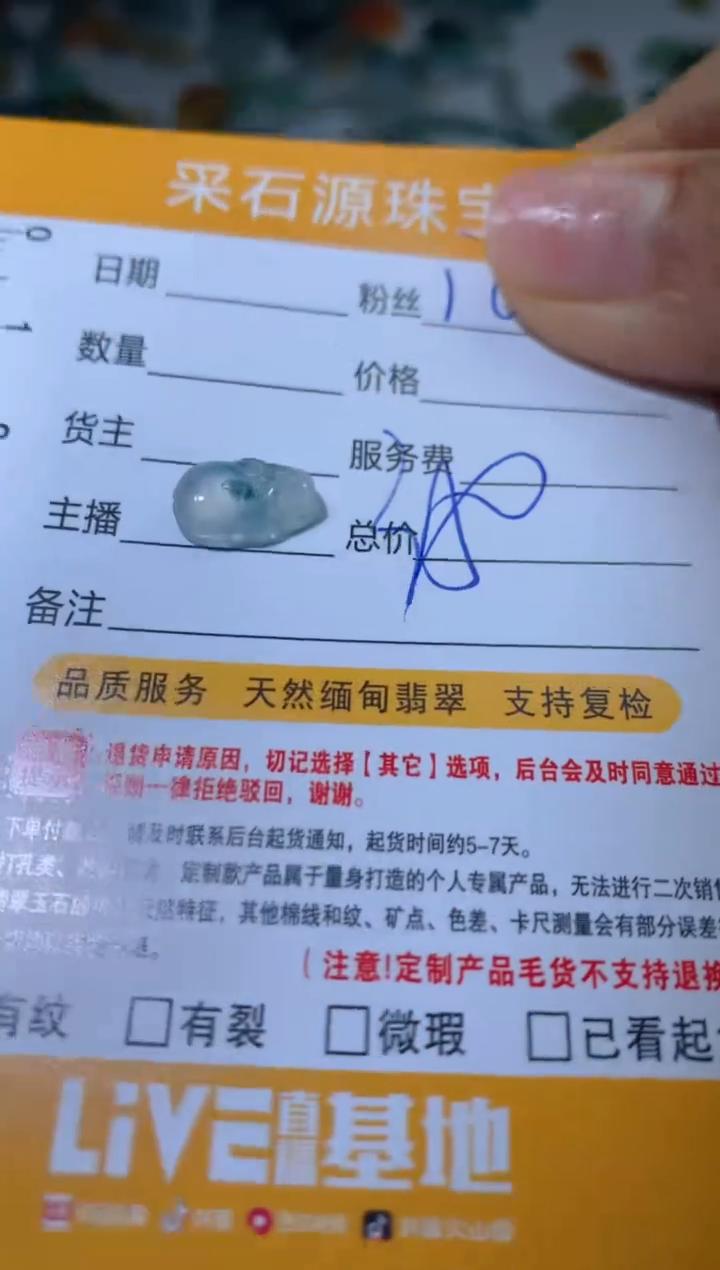 采石源珠宝
日期 粉丝 10
数量 价格
货主 服务费
主播 总价
备注
品质服务 天然缅甸翡翠 支持复检
退货申请原因，切记选择【其它】选项，后台会及时同意通过
一律拒绝驳回，谢谢。
下单付 请及时联系后台起货通知，起货时间约5-7天。
定制款产品属于量身打造的个人专属产品，无法进行二次销售
翡翠玉石 特征，其他棉线和纹、矿点、色差、卡尺测量会有部分误差
(注意!定制产品毛货不支持退换
有纹 有裂 微瑕 已看起货
LiVE直播基地